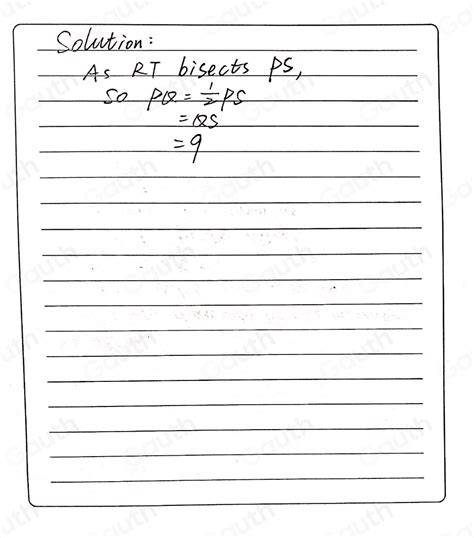 Solution:
As RT bisects PS,
So PQ = 1/2 PS
= QS
= 9